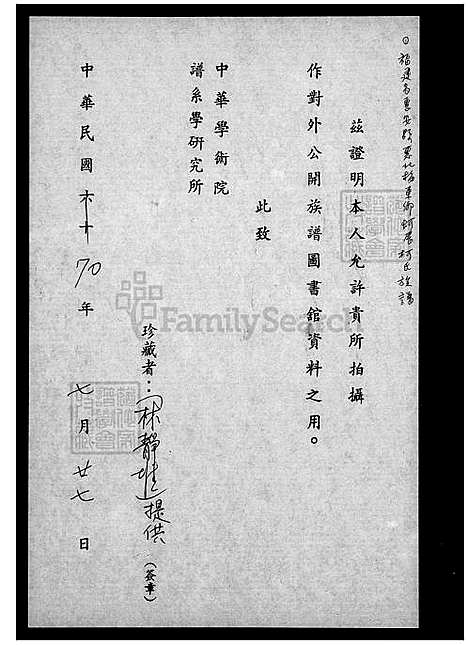 福建省惠安縣惠北梅東鄉柯厝柯氏族譜
茲證明本人允許貴所拍攝
作對外公開族譜圖書館資料之用。
此致
中華學術院
譜系學研究所
珍藏者：林靜 提供（簽章）
中華民國六十70年七月廿七日
FamilySearch